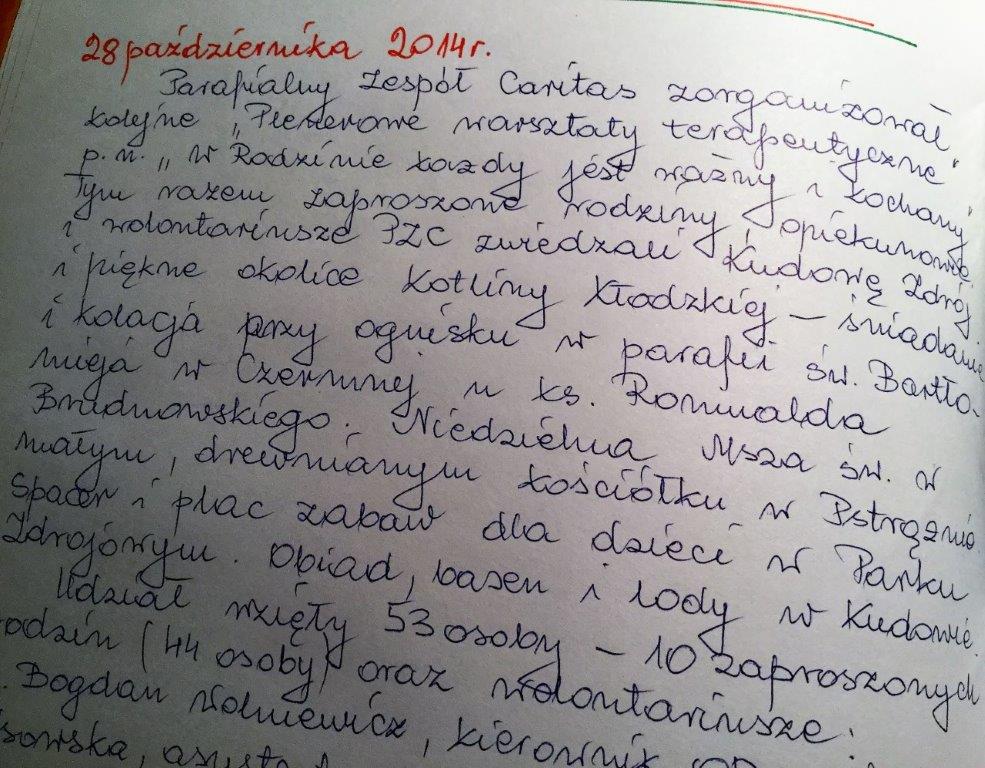 28 października 2014 r.
Parafialny Zespół Caritas zorganizował
kolejne „Plenerowe warsztaty terapeutyczne"
p.n. „W Rodzinie każdy jest ważny i kochany"
Tym razem zaproszone rodziny, opiekunowie
i wolontariusze PZC zwiedzali Kudowę Zdrój
i piękne okolice Kotliny Kłodzkiej – śniadanie
i kolacja przy ognisku w parafii św. Bartło-
mieja w Czermnej u ks. Romualda
Brudnowskiego. Niedzielna Msza św. w
małym, drewnianym kościółku w Pstrążnie.
Spacer i plac zabaw dla dzieci w Parku
Zdrojowym. Obiad, basen i lody w Kudowie.
Udział wzięły 53 osoby – 10 zaproszonych
rodzin (44 osoby) oraz wolontariusze:
Bogdan Wolniewicz, kierownik